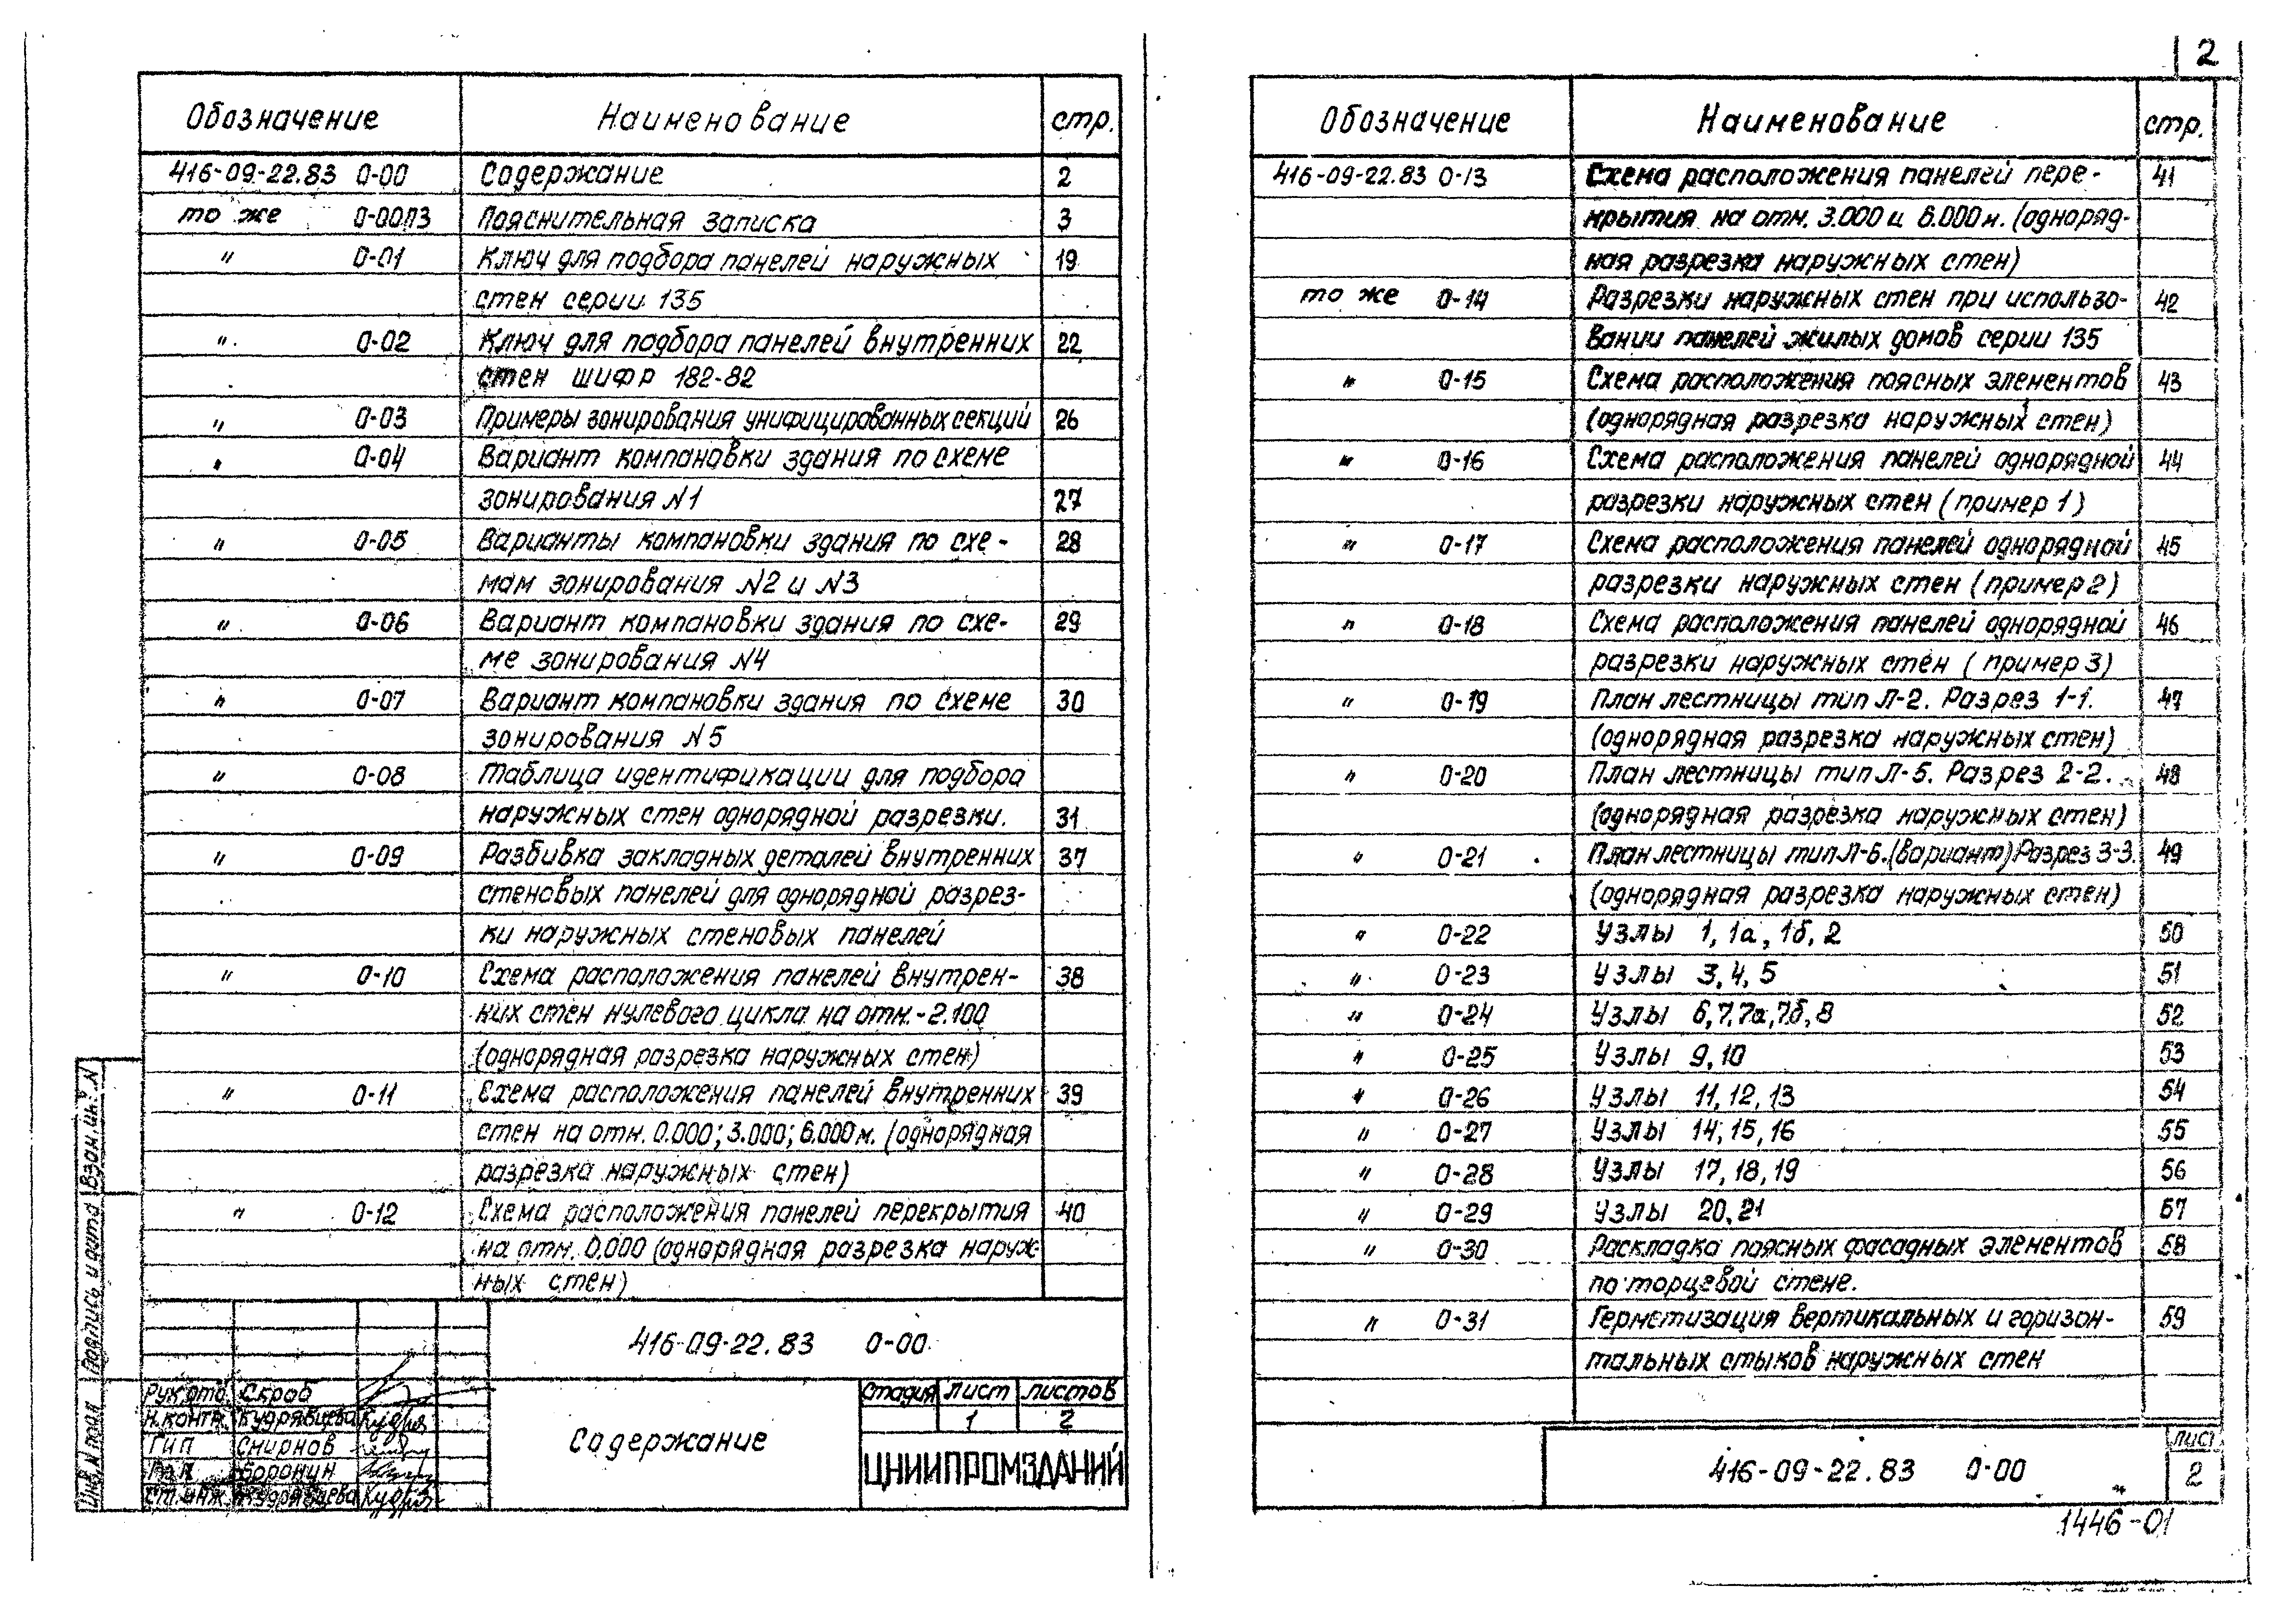 2
Обозначение Наименование стр.
416-09-22.83 0-00 Содержание 2
то же 0-00ПЗ Пояснительная записка 3
" 0-01 Ключ для подбора панелей наружных 19
стен серии 135
" 0-02 Ключ для подбора панелей внутренних 22
стен шифр 182-82
" 0-03 Примеры зонирования унифицированных секций 26
" 0-04 Вариант компановки здания по схеме
зонирования N1 27
" 0-05 Варианты компановки здания по схе- 28
мам зонирования N2 и N3
" 0-06 Вариант компановки здания по схе- 29
ме зонирования N4
" 0-07 Вариант компановки здания по схеме 30
зонирования N5
" 0-08 Таблица идентификации для подбора
наружных стен однорядной разрезки. 31
" 0-09 Разбивка закладных деталей внутренних 37
стеновых панелей для однорядной разрез-
ки наружных стеновых панелей
" 0-10 Схема расположения панелей внутрен- 38
них стен нулевого цикла на отм.-2.100
(однорядная разрезка наружных стен)
" 0-11 Схема расположения панелей внутренних 39
стен на отм. 0.000; 3.000; 6.000м. (однорядная
разрезка наружных стен)
" 0-12 Схема расположения панелей перекрытия 40
на отм. 0.000 (однорядная разрезка наруж-
ных стен)
416-09-22.83 0-00
Содержание
стадия лист листов
1 2
ЦНИИПРОМЗДАНИЙ
Рук.отд. Скроб
Н.контр. Кудрявцева
ГИП Смирнов
Воронин
Ст.инж. Кудрявцева
Инв.N подл. Подпись и дата Взам.инв.N
Обозначение Наименование стр.
416-09-22.83 0-13 Схема расположения панелей пере- 41
крытия на отм. 3.000 и 6.000м. (одноряд-
ная разрезка наружных стен)
то же 0-14 Разрезки наружных стен при использо- 42
вании панелей жилых домов серии 135
" 0-15 Схема расположения поясных элементов 43
(однорядная разрезка наружных стен)
" 0-16 Схема расположения панелей однорядной 44
разрезки наружных стен (пример 1)
" 0-17 Схема расположения панелей однорядной 45
разрезки наружных стен (пример 2)
" 0-18 Схема расположения панелей однорядной 46
разрезки наружных стен (пример 3)
" 0-19 План лестницы тип Л-2. Разрез 1-1. 47
(однорядная разрезка наружных стен)
" 0-20 План лестницы тип Л-5. Разрез 2-2. 48
(однорядная разрезка наружных стен)
" 0-21 План лестницы тип Л-5.(вариант) Разрез 3-3. 49
(однорядная разрезка наружных стен)
" 0-22 Узлы 1, 1а, 1б, 2 50
" 0-23 Узлы 3, 4, 5 51
" 0-24 Узлы 6, 7, 7а, 7б, 8 52
" 0-25 Узлы 9, 10 53
" 0-26 Узлы 11, 12, 13 54
" 0-27 Узлы 14, 15, 16 55
" 0-28 Узлы 17, 18, 19 56
" 0-29 Узлы 20, 21 57
" 0-30 Раскладка поясных фасадных элементов 58
по торцевой стене.
" 0-31 Герметизация вертикальных и горизон- 59
тальных стыков наружных стен
416-09-22.83 0-00
лист
2
1446-01